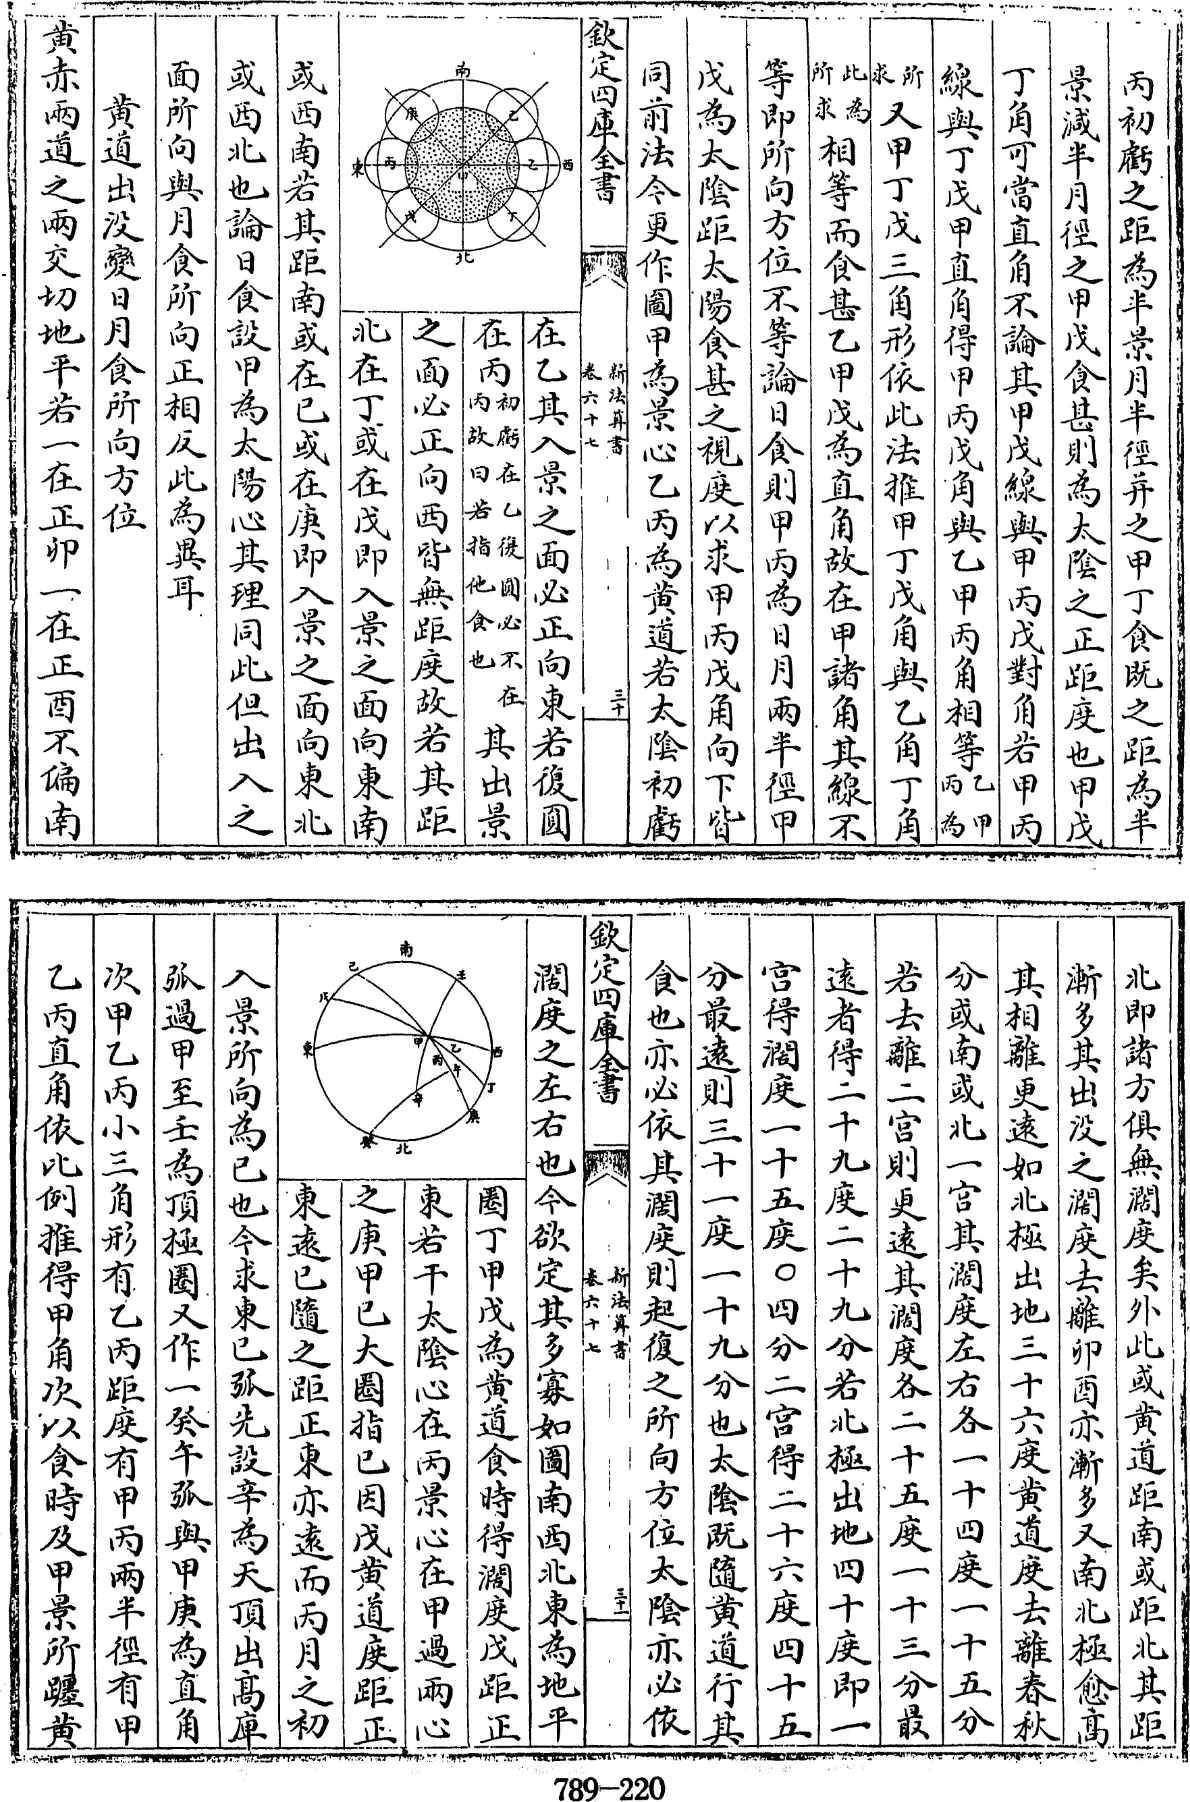 丙初虧之距為半景月半徑并之甲丁食既之距為半
景減半月徑之甲戊食甚則為太陰之正距度也甲戊
丁角可當直角不論其甲戊線與甲丙戊對角若甲丙
線與丁戊甲直角得甲丙戊角與乙甲丙角相等乙甲丙為
所求又甲丁戊三角形依此法推甲丁戊角與乙角丁角
此為所求相等而食甚乙甲戊為直角故在甲諸角其線不
等即所向方位不等論日食則甲丙為日月兩半徑甲
戊為太陰距太陽食甚之視度以求甲丙戊角向下皆
同前法今更作圖甲為景心乙丙為黃道若太陰初虧
欽定四庫全書
新法算書
卷六十七
三十
在乙其入景之面必正向東若復圓
在丙初虧在乙復圓必不在丙故曰若指他食也其出景
之面必正向西皆無距度故若其距
北在丁或在戊即入景之面向東南
南
庚
己
東
丙
甲
乙
西
戊
丁
北
或西南若其距南或在已或在庚即入景之面向東北
或西北也論日食設甲為太陽心其理同此但出入之
面所向與月食所向正相反此為異耳
黃道出没變日月食所向方位
黃赤兩道之兩交切地平若一在正卯一在正酉不偏南
北即諸方俱無濶度矣外此或黃道距南或距北其距
漸多其出没之濶度去離卯酉亦漸多又南北極愈高
其相離更遠如北極出地三十六度黃道度去離春秋
分或南或北一宮其濶度左右各一十四度一十五分
若去離二宮則更遠其濶度各二十五度一十三分最
遠者得二十九度二十九分若北極出地四十度即一
宮得濶度一十五度〇四分二宮得二十六度四十五
分最遠則三十一度一十九分也太陰既隨黃道行其
食也亦必依其濶度則起復之所向方位太陰亦必依
欽定四庫全書
新法算書
卷六十七
三十一
濶度之左右也今欲定其多寡如圖南西北東為地平
圈丁甲戊為黃道食時得濶度戊距正
東若干太陰心在丙景心在甲過兩心
之庚甲已大圈指已因戊黃道度距正
東遠已隨之距正東亦遠而丙月之初
南
己
壬
戊
東
甲
乙
西
丙
午
丁
辛
庚
癸
北
入景所向為已也今求東已弧先設辛為天頂出高庫
弧過甲至壬為頂極圈又作一癸午弧與甲庚為直角
次甲乙丙小三角形有乙丙距度有甲丙兩半徑有甲
乙丙直角依比例推得甲角次以食時及甲景所躔黃
789-220